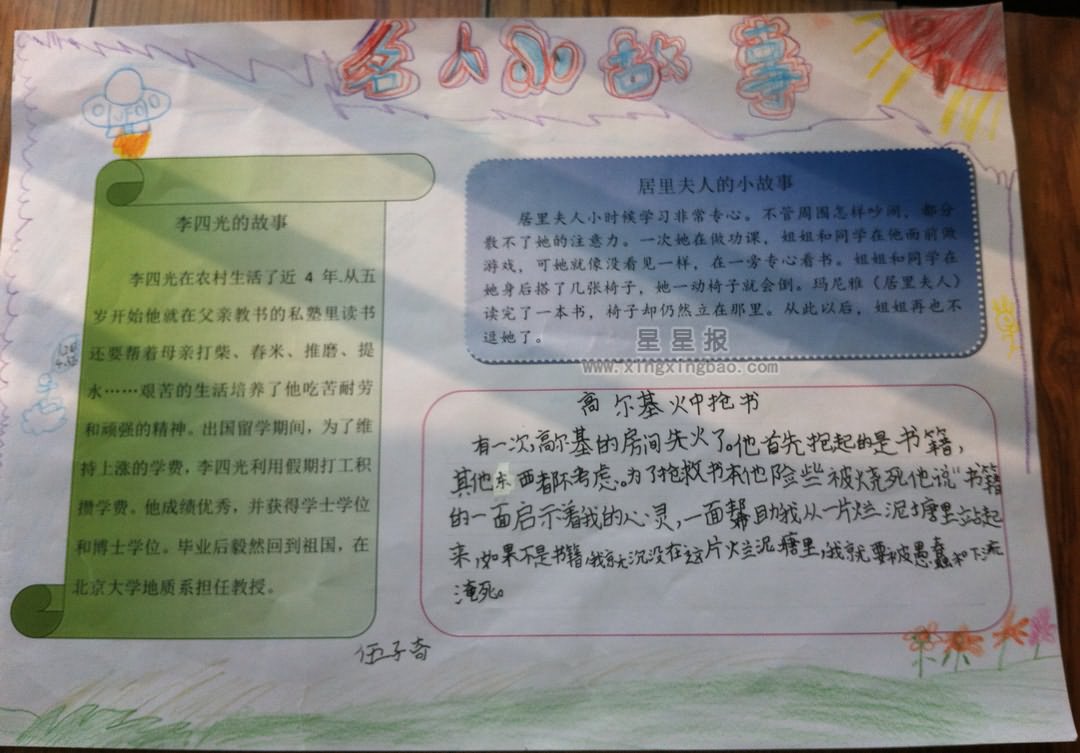 名人小故事
UFO
李四光的故事
李四光在农村生活了近 4 年.从五
岁开始他就在父亲教书的私塾里读书
还要帮着母亲打柴、舂米、推磨、提
水……艰苦的生活培养了他吃苦耐劳
和顽强的精神。出国留学期间，为了维
持上涨的学费，李四光利用假期打工积
攒学费。他成绩优秀，并获得学士学位
和博士学位。毕业后毅然回到祖国，在
北京大学地质系担任教授。
居里夫人的小故事
居里夫人小时候学习非常专心。不管周围怎样吵闹，都分
散不了她的注意力。一次她在做功课，姐姐和同学在他面前做
游戏，可她就像没看见一样，在一旁专心看书。姐姐和同学在
她身后搭了几张椅子，她一动椅子就会倒。玛尼雅（居里夫人）
读完了一本书，椅子却仍然立在那里。从此以后，姐姐再也不
逗她了。
星星报
www.xingxingbao.com
高尔基火中抢书
有一次,高尔基的房间失火了。他首先抱起的是书籍，
其他东西都不考虑。为了抢救书本他险些被烧死他说“书籍
的一面启示着我的心灵，一面帮助我从一片烂泥塘里站起
来,如果不是书籍,我就沉没在这片烂泥塘里,我就要被愚蠢和下流
淹死。
伍子奇